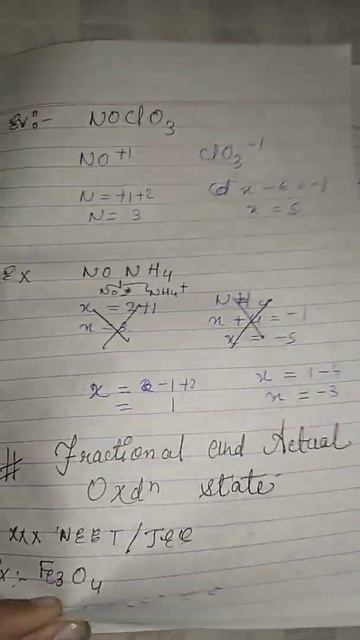 Ex:- NOClO3
NO+1 ClO3-1
N = +1+2 Cl x - 6 = -1
N = 3 x = 5
Ex NO NH4
NH4+
x = 2+1 NH4
x = 3 x + 4 = -1
x = -5
x = -1+2 x = 1-4
= 1 x = -3
# Fractional and Actual
Oxdn state
xxx NEET/JEE
Ex:- Fe3O4